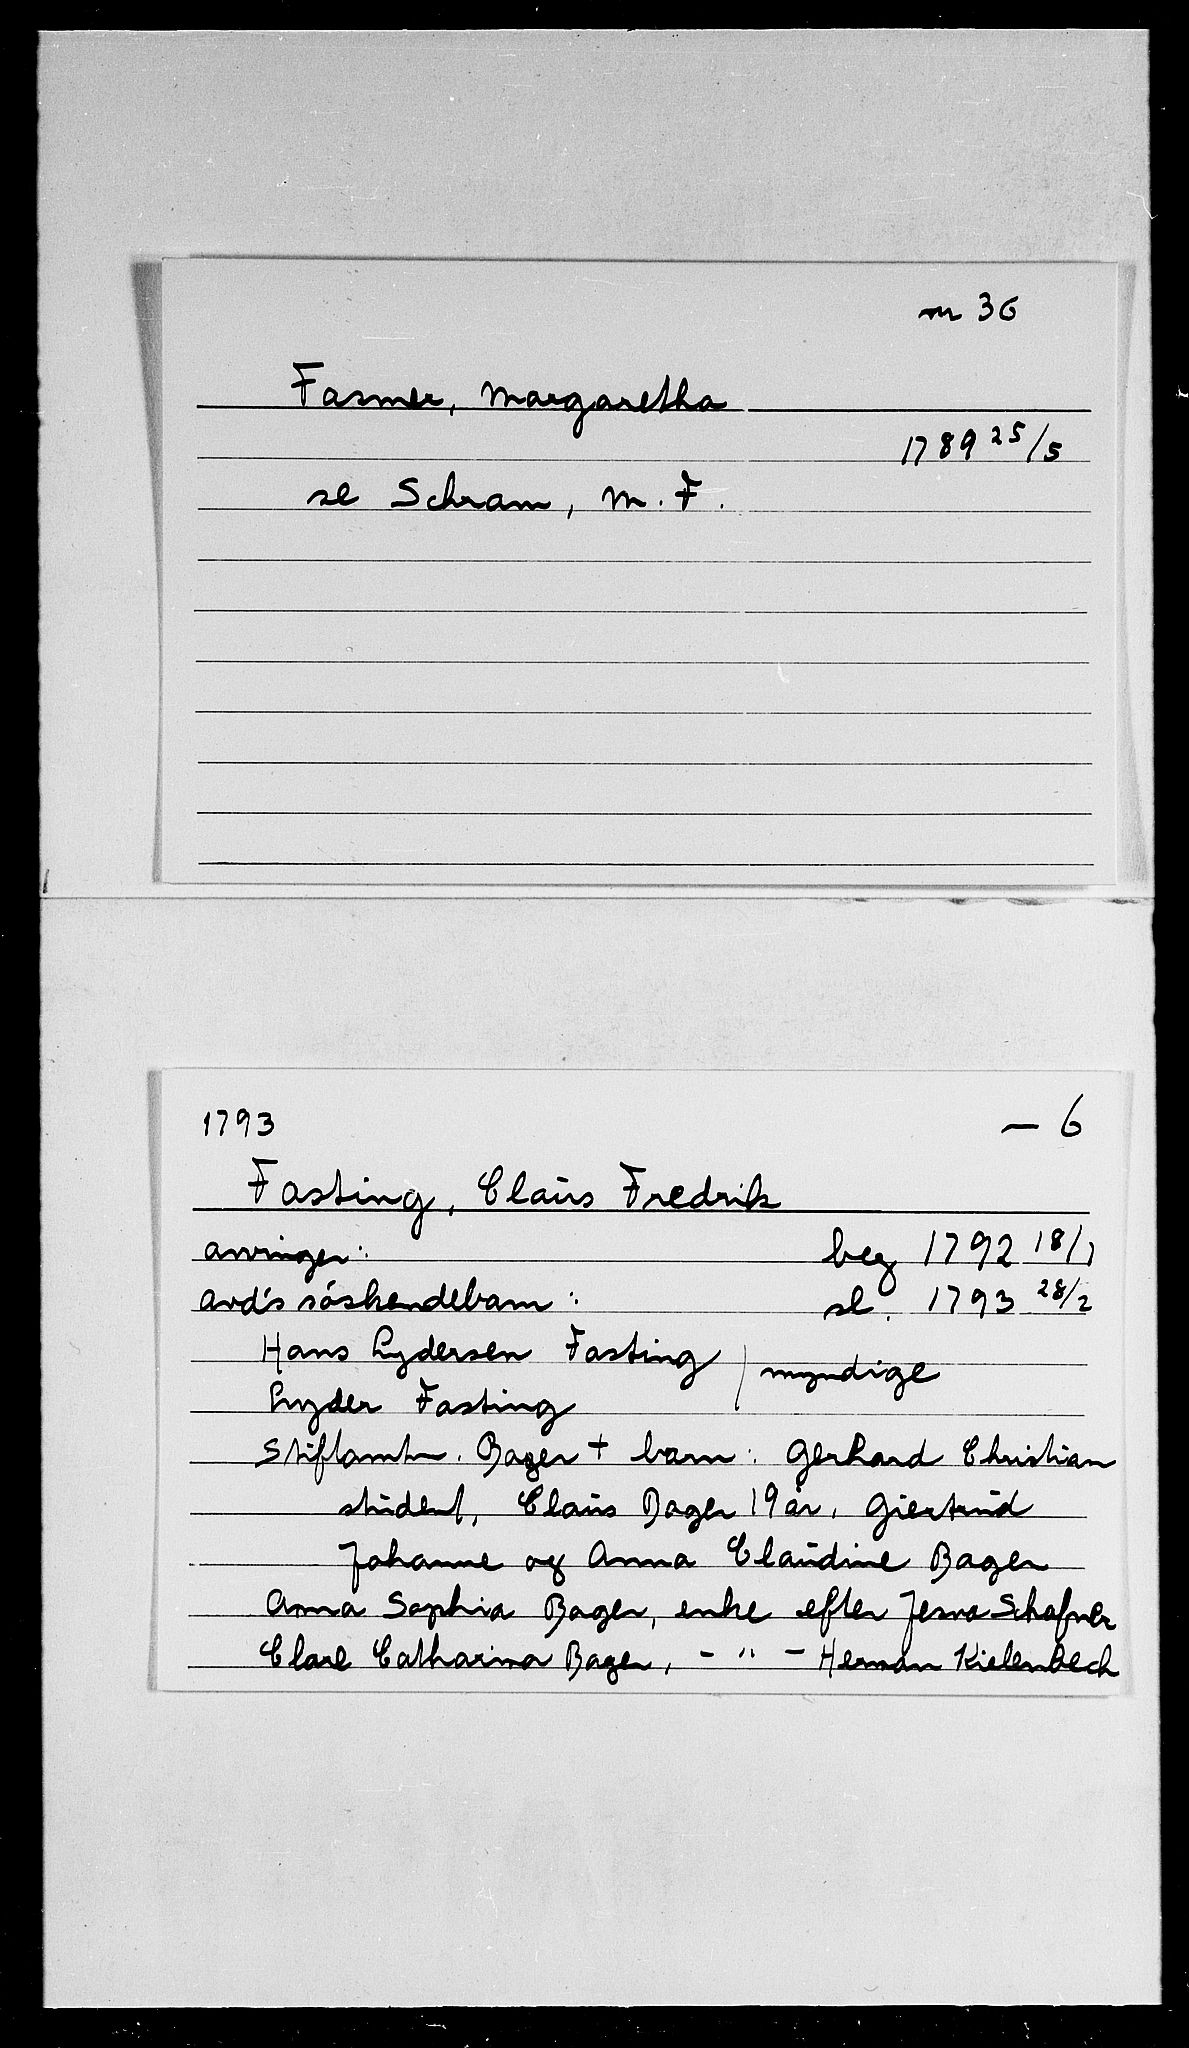 m 36
Fasmer, Margaretha
1789 25/5
se Schram, M. F.
1793 — 6
Fasting, Claus Fredrik
arvinger: beg 1792 18/1
avd's söskendebarn: sl. 1793 28/2
Hans Lydersen Fasting
Lyder Fasting ) myndige
Stiftamtm. Bager + barn: Gerhard Christian
student, Claus Bager 19 år, Giertrud
Johanne og Anna Claudine Bager
Anna Sophia Bager, enke efter Jesva Schafner
Clare Catharina Bager, - " - Herman Kielenbech